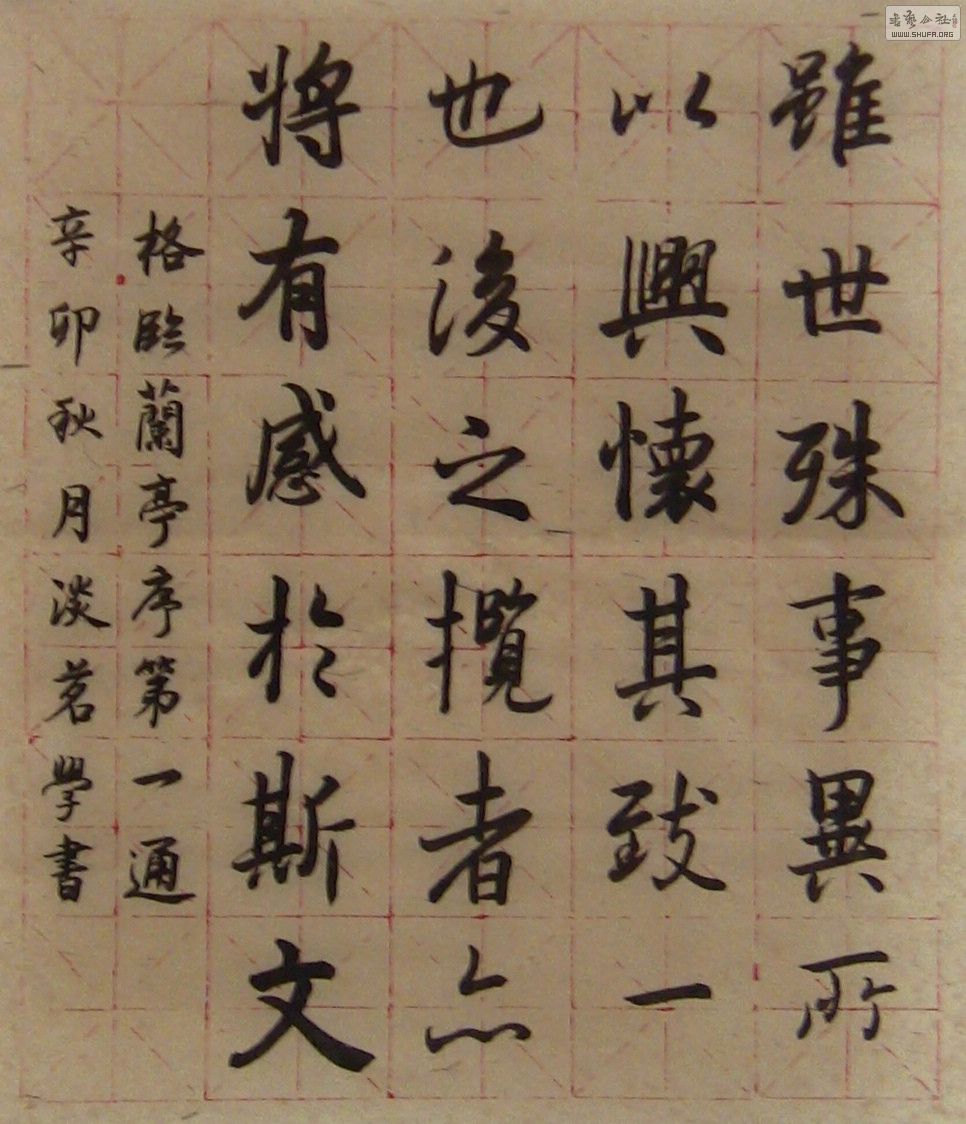 雖世殊事異所
以興懷其致一
也後之攬者亦
將有感於斯文
格臨蘭亭序第一通
辛卯秋月淡茗學書
书艺公社
WWW.SHUFA.ORG